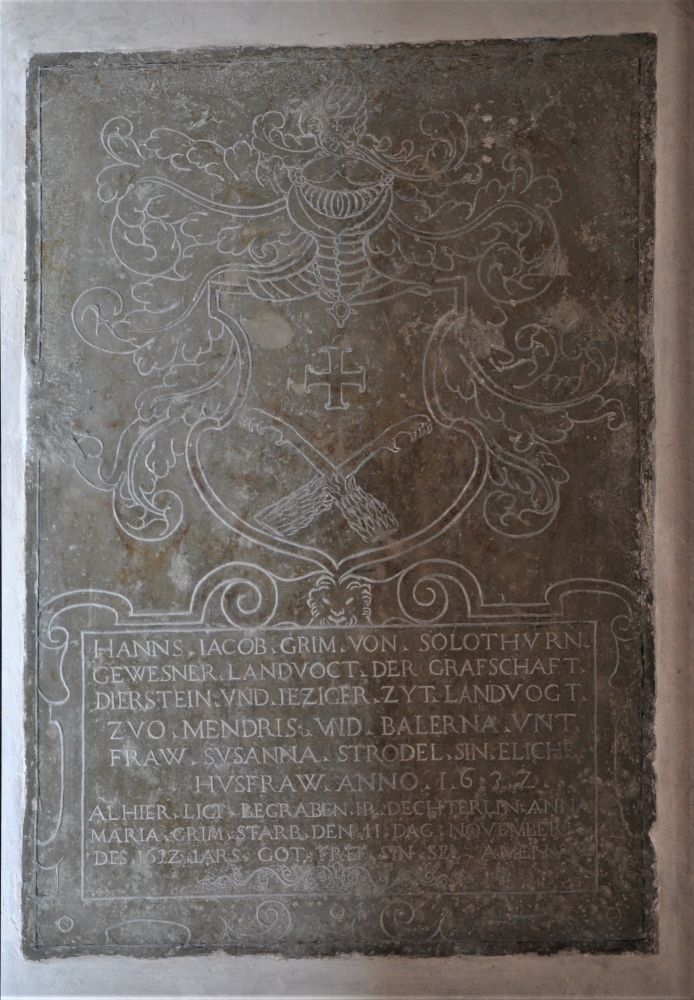 HANNS. IACOB. GRIM. VON. SOLOTHVRN.
GEWESNER. LANDVOCT. DER GRAFSCHAFT.
DIERSTEIN. VND. IEZIGER. ZYT. LANDVOGT
ZVO. MENDRIS. VID. BALERNA. VNT.
FRAW. SVSANNA. STRODEL. SIN. ELICHE.
HVSFRAW. ANNO. 1.6.3.2.
ALHIER. LIGT. BEGRABEN. IR. DECHTERLIN. ANNA
MARIA. GRIM. STARB. DEN. 11. DAG. NOVEMBER
DES. IARS. GOT. SIN. AMEN